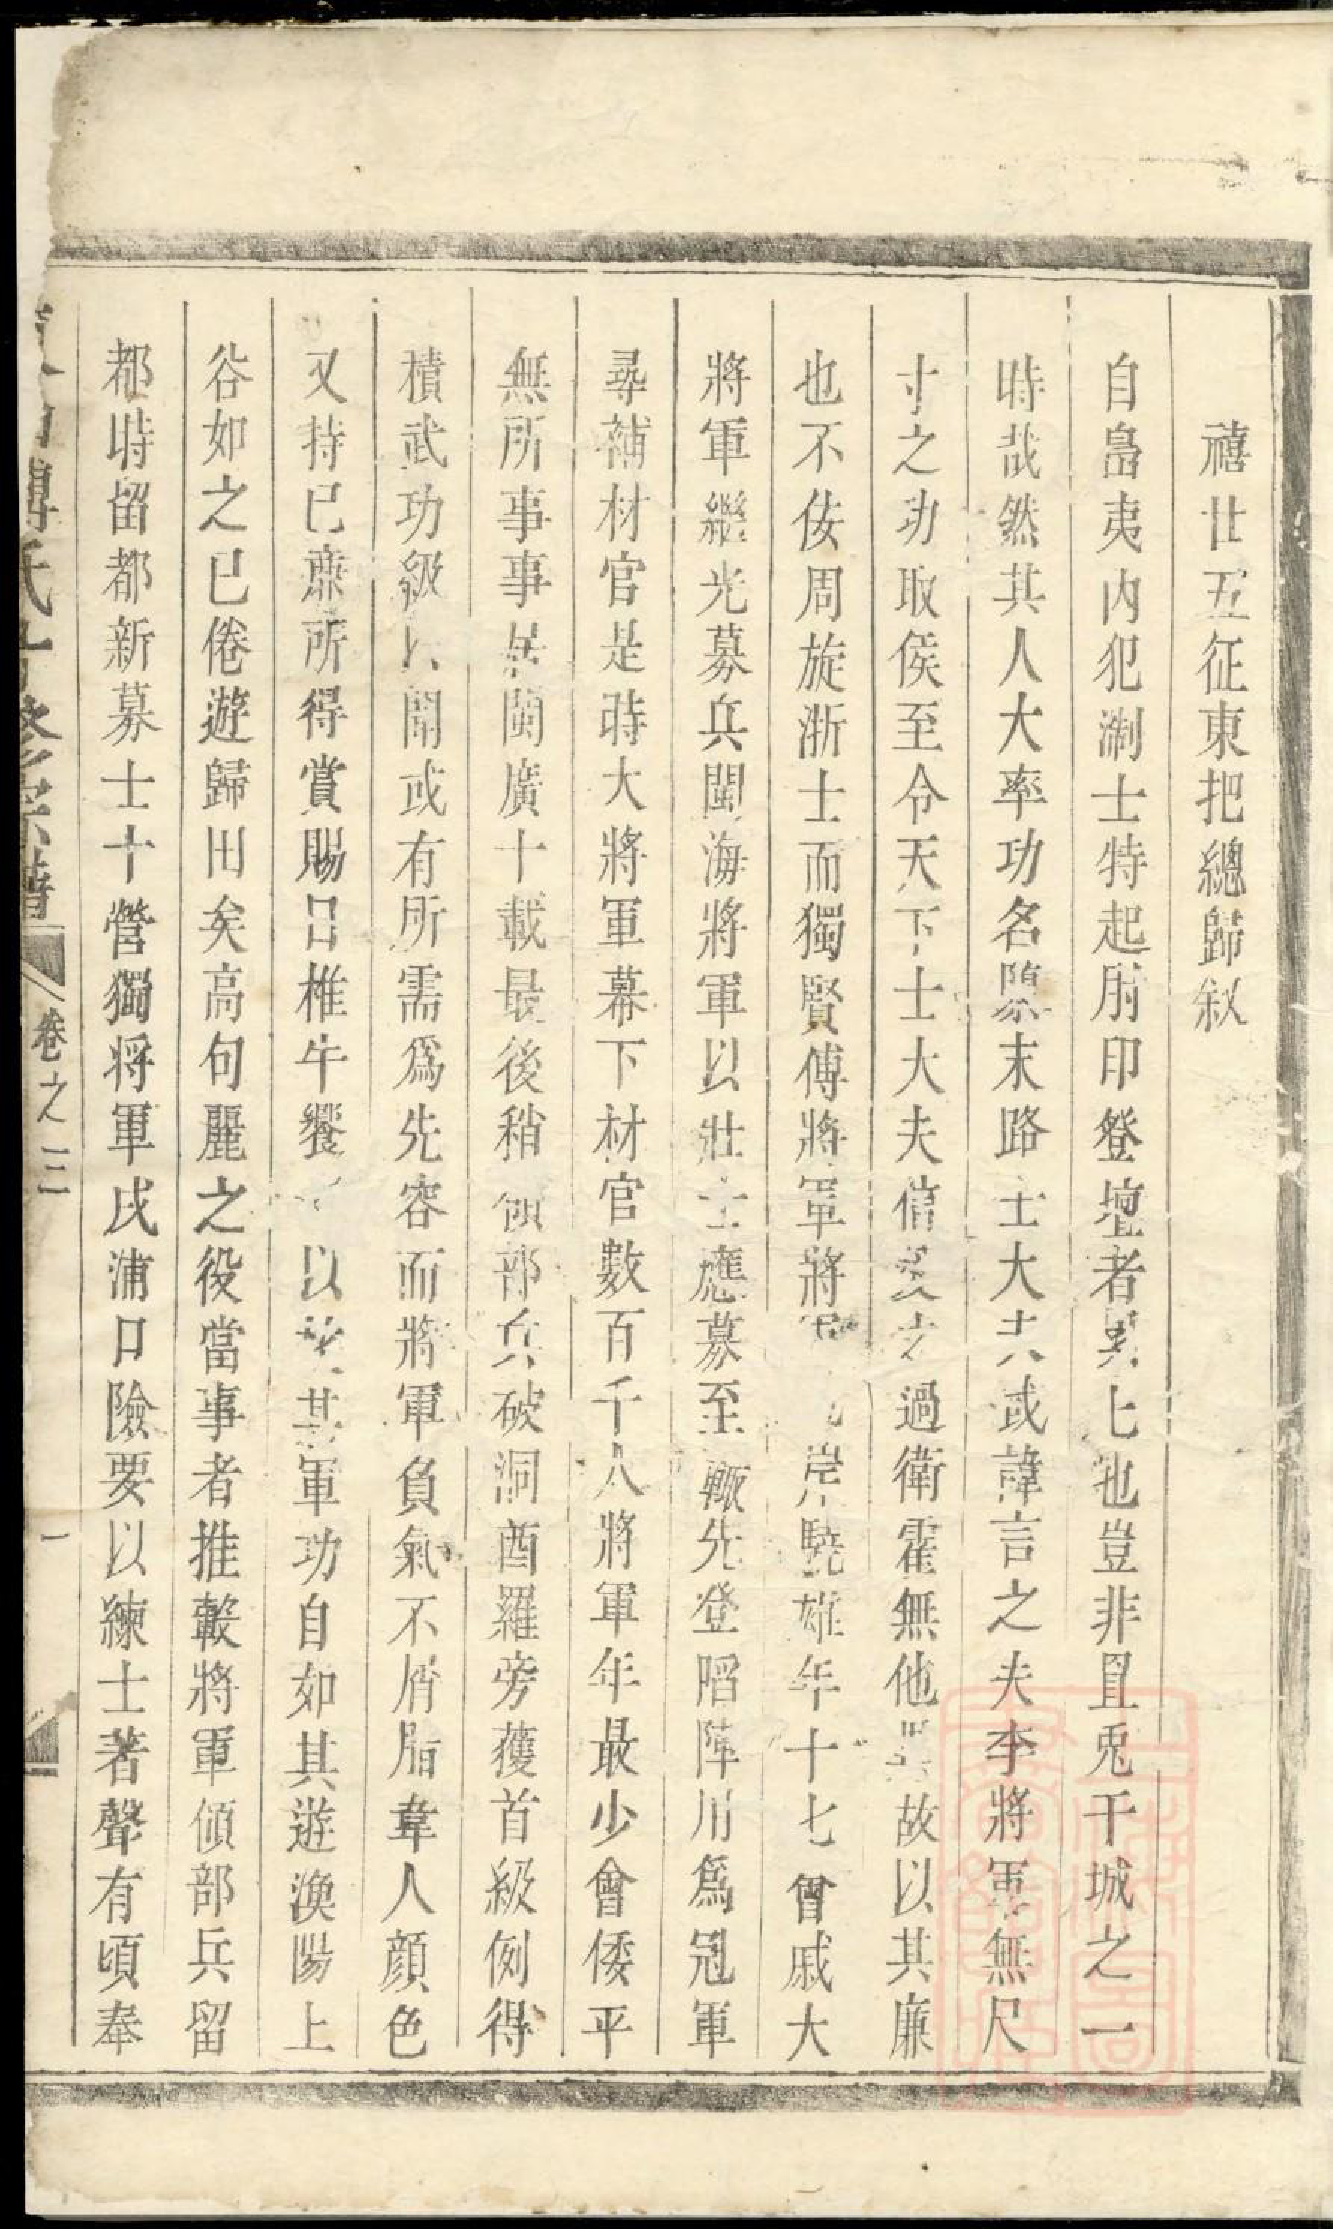 禧廿五征東把總歸敘
自島夷内犯淛士特起肘印登壇者異七也豈非罝兎干城之一
時哉然其人大率功名隳末路士大夫或諱言之夫李將軍無尺
寸之功取侯至令天下士大夫信之過衛霍無他故以其廉
也不佞周旋浙士而獨賢傅將軍將軍岸驍雄年十七會戚大
將軍繼光募兵閩海將軍以壯士應募至輙先登䧟陣川爲冠軍
尋補材官是時大將軍幕下材官數百千人將軍年最少會倭平
無所事事居閩廣十載最後稍領部兵破洞酋羅旁獲首級例得
積武功級以聞或有所需爲先容而將軍負氣不屑脂韋人顔色
又持已㢘所得賞賜日椎牛饗以其軍功自如其遊漁陽上
谷如之已倦遊歸田矣高句麗之役當事者推轂將軍領部兵留
都時留都新募士十營獨将軍戍浦口險要以練士著聲有頃奉
傅氏修宗譜 卷之三 一